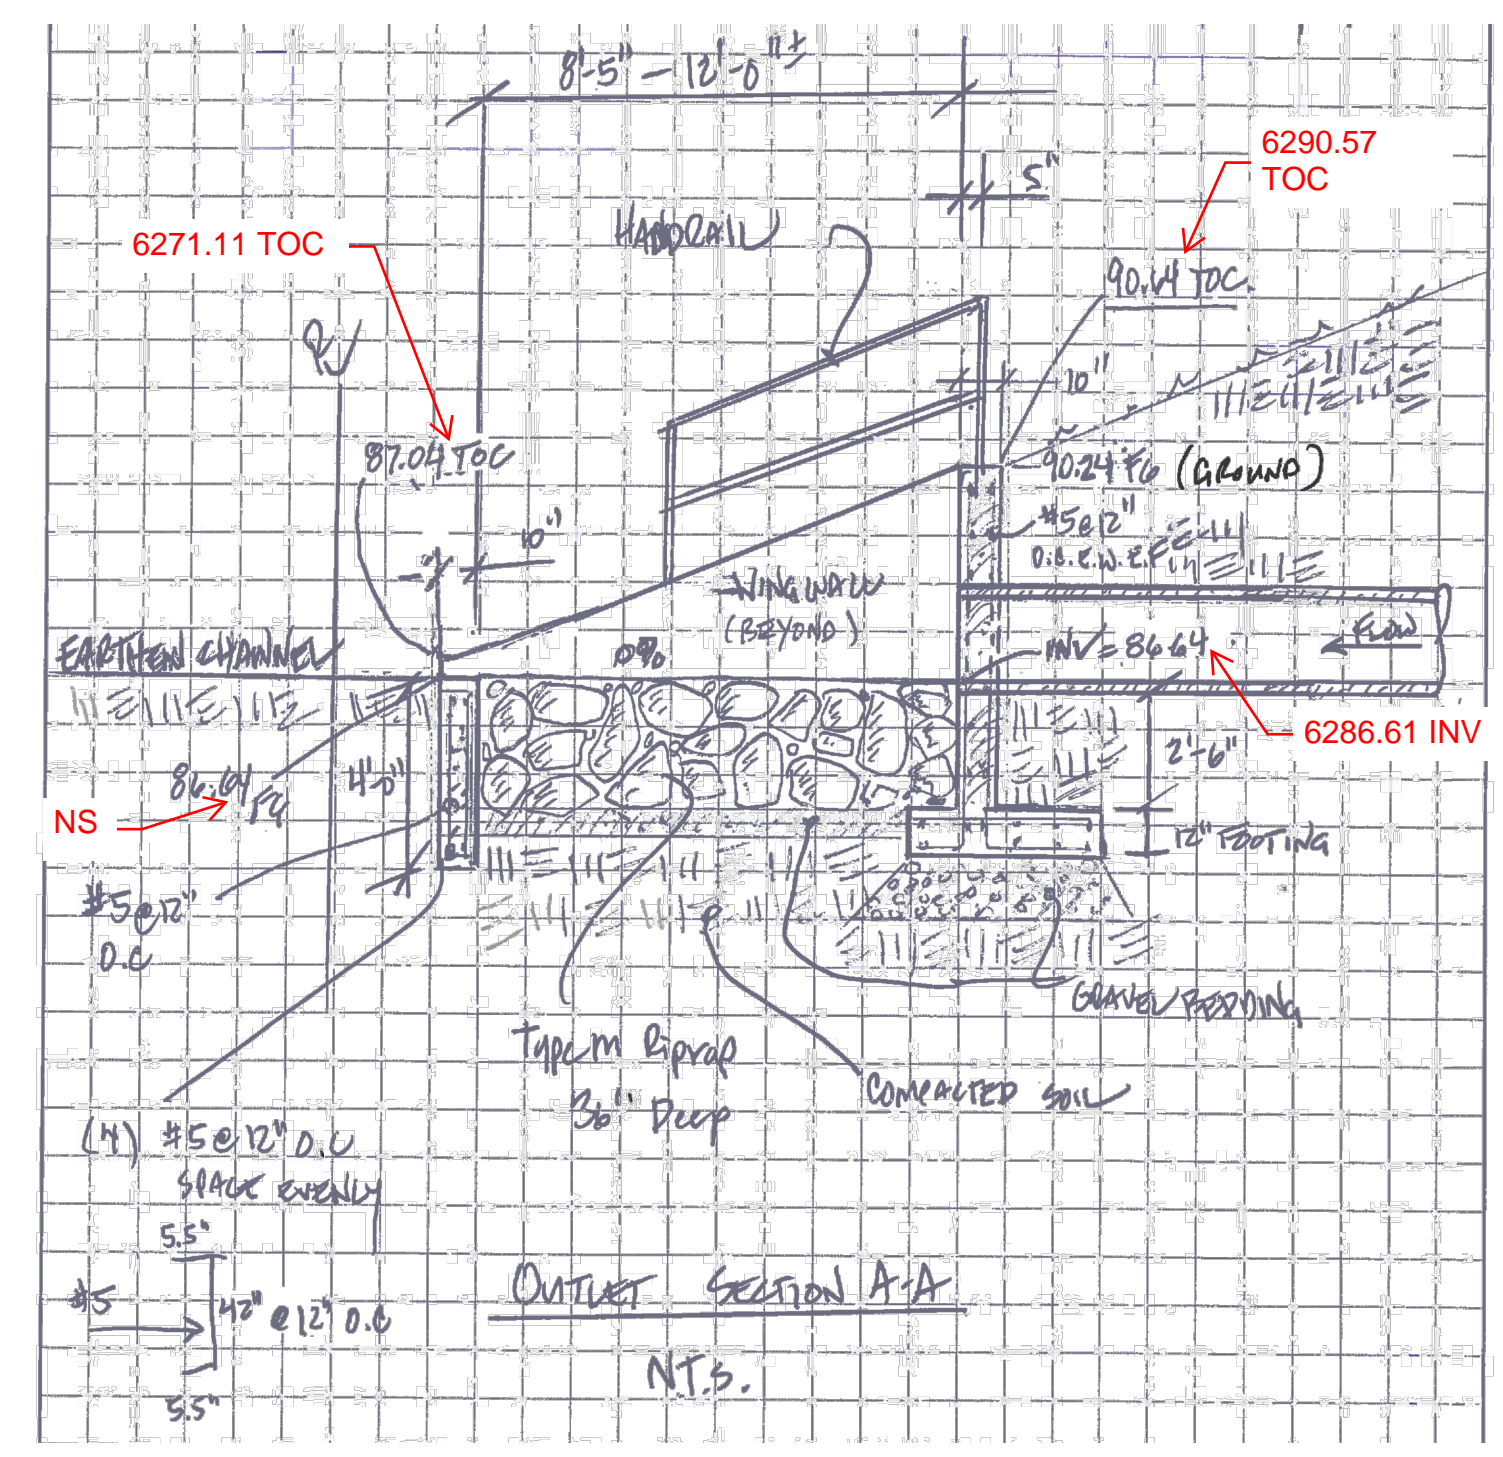 8'-5" — 12'-0"±
6290.57
TOC
5"
HANDRAIL
6271.11 TOC
90.64 TOC.
10"
87.04 TOC
90.24 FG (GROUND)
#5@12"
O.C.E.W.E.F
10"
WINGWALL
(BEYOND)
EARTHEN CHANNEL
0%
INV = 86.64
FLOW
6286.61 INV
2'-6"
86.64
FG
4'-0"
NS
12" FOOTING
#5@12"
O.C
GRAVEL BEDDING
Type M Riprap
36" Deep
COMPACTED SOIL
(4) #5@12" O.C
SPACE EVENLY
5.5"
#5
42" @12" O.C
5.5"
OUTLET SECTION A-A
N.T.S.